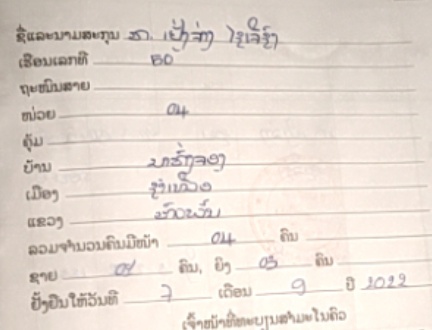 ຊື່ແລະນາມສະກຸນ ທ. ເຢັ້ງຊົ່ງ ໄຊເຈີຊົ່ງ
ເຮືອນເລກທີ BO
ຖະໜົນສາຍ
ໜ່ວຍ 04
ຄຸ້ມ
ບ້ານ
ເມືອງ ຊຳເໜືອ
ແຂວງ ຫົວພັນ
ລວມຈຳນວນຄົນມີໜ້າ 04 ຄົນ
ຊາຍ 01 ຄົນ, ຍິງ 03 ຄົນ
ຢັ້ງຢືນໃຫ້ວັນທີ 7 ເດືອນ 9 ປີ 2022
ເຈົ້າໜ້າທີ່ທະບຽນສຳມະໂນຄົວ